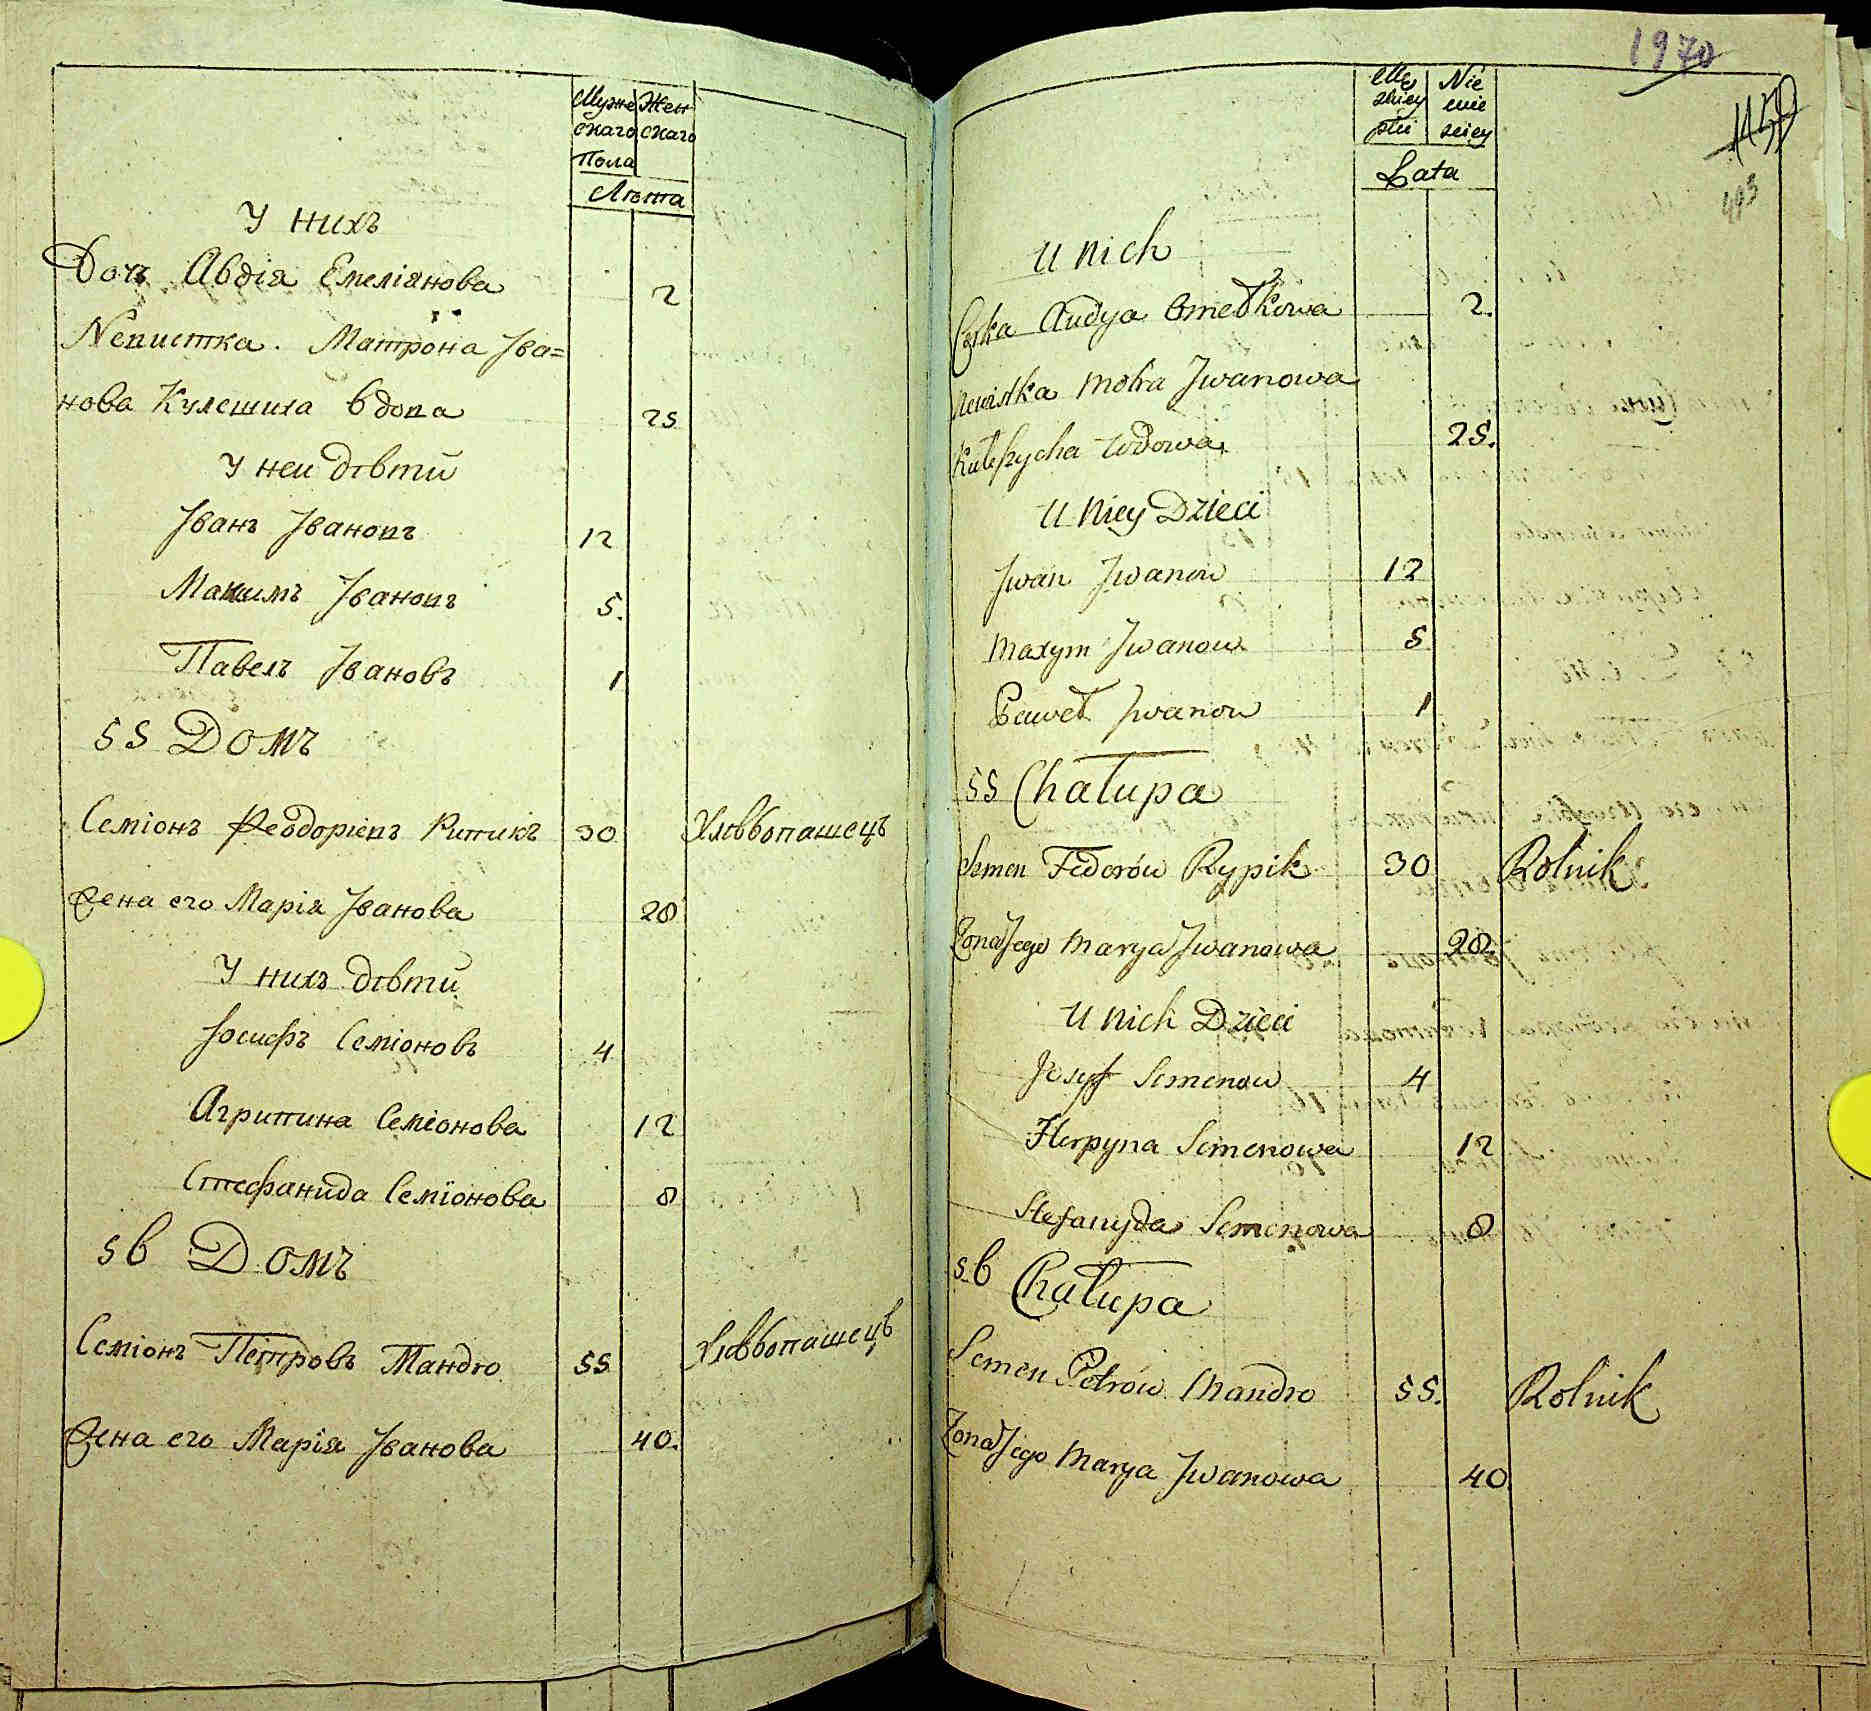 Муже Жен
скаго скаго
Пола
Лѣта
У нихъ
Дочъ Авдія Емеліянова 2
Невистка. Матрона Іва=
нова Кулешиха вдова 25
У неи дѣти
Іванъ Івановъ 12
Максимъ Івановъ 5.
Павелъ Івановъ 1
55 Домъ
Семіонъ Феодоріевъ Рипикъ 30 Хлѣбопашецъ
Жена его Марія Іванова 28
У нихъ дѣти
Іосифъ Семіоновъ 4
Агрипина Семіонова 12
Стефанида Семіонова 8
56 Домъ
Семіонъ Петровъ Мандю 55 Хлѣбопашецъ
Жена его Марія Іванова 40.
1970
Mę Nie
skiey wie
płci sciey
Lata
U nich
Corka Audya Omelkowa 2.
Newistka Motra Jwanowa
Kuleszycha Wdowa 25.
U Niey Dzieci
Jwan Jwanow 12
Maxym Jwanow 5
Paweł Jwanow 1
55 Chałupa
Semen Fedorów Rypik 30 Rolnik
Zona Jego Marya Jwanowa 28
U nich Dzieci
Josyf Semenow 4
Horpyna Semenowa 12
Stefanyda Semenowa 8
56 Chałupa
Semen Petrów Mandro 55. Rolnik
Zona Jego Marya Jwanowa 40